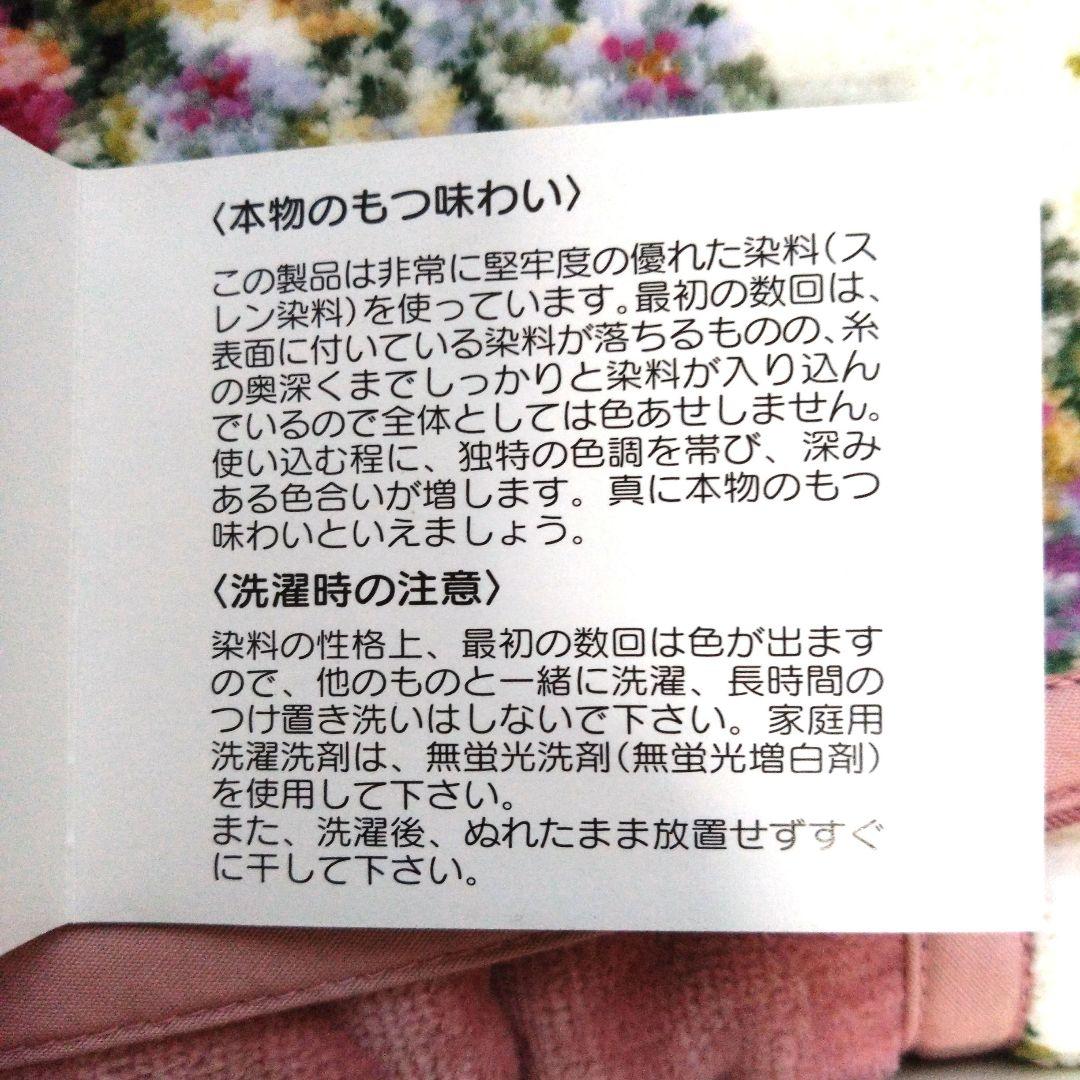 〈本物のもつ味わい〉
この製品は非常に堅牢度の優れた染料(ス
レン染料)を使っています。最初の数回は、
表面に付いている染料が落ちるものの、糸
の奥深くまでしっかりと染料が入り込ん
でいるので全体としては色あせしません。
使い込む程に、独特の色調を帯び、深み
ある色合いが増します。真に本物のもつ
味わいといえましょう。
〈洗濯時の注意〉
染料の性格上、最初の数回は色が出ます
ので、他のものと一緒に洗濯、長時間の
つけ置き洗いはしないで下さい。家庭用
洗濯洗剤は、無蛍光洗剤(無蛍光増白剤)
を使用して下さい。
また、洗濯後、ぬれたまま放置せずすぐ
に干して下さい。